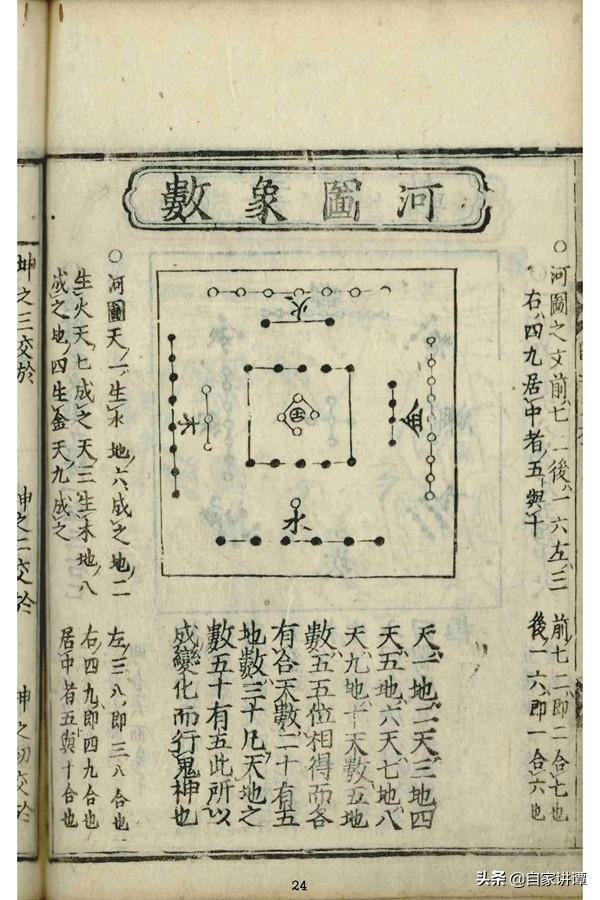 河圖象數
○河圖之文前七二後一六左三
右四九居中者五與十
前七二即二合七也
後一六即一合六也
火
金
木
水
天一地二天三地四
天五地六天七地八
天九地十天數五地
數五五位相得而各
有合天數二十有五
地數三十凡天地之
數五十有五此所以
成變化而行鬼神也
○河圖天一生水地六成之地二
生火天七成之天三生木地八
成之地四生金天九成之
左三八即三八合也
右四九即四九合也
居中者五與十合也
坤之三交於
坤之二交於
坤之初交於
24
头条 @自家讲谭